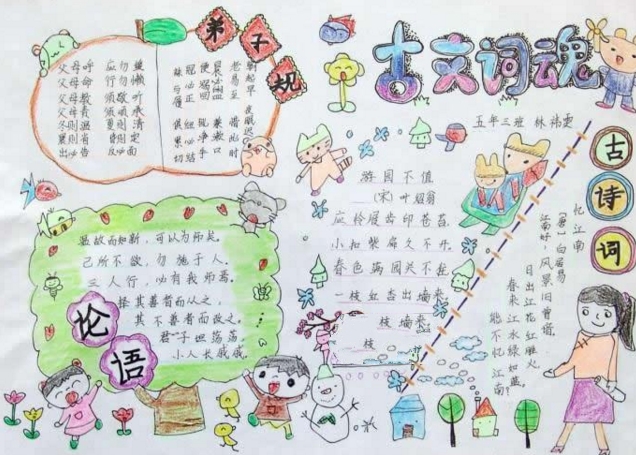 古文词魂
五年三班 林
弟子规
父母呼 应勿缓
父母命 行勿懒
父母教 须敬听
父母责 须顺承
冬则温 夏则清
晨则省 昏则定
出必告 反必面
朝起早 夜眠迟
老易至 惜此时
晨必盥 兼漱口
便溺回 辄净手
冠必正 纽必结
袜与履 俱紧切
论语
温故而知新,可以为师矣。
己所不欲,勿施于人。
三人行,必有我师焉。
择其善者而从之,
其不善者而改之。
君子坦荡荡,
小人长戚戚。
游园不值
(宋)叶绍翁
应怜屐齿印苍苔,
小扣柴扉久不开。
春色满园关不住,
一枝红杏出墙来。
枝 墙来
枝
古诗词
忆江南
[唐]白居易
江南好,风景旧曾谙。
日出江花红胜火,
春来江水绿如蓝。
能不忆江南?